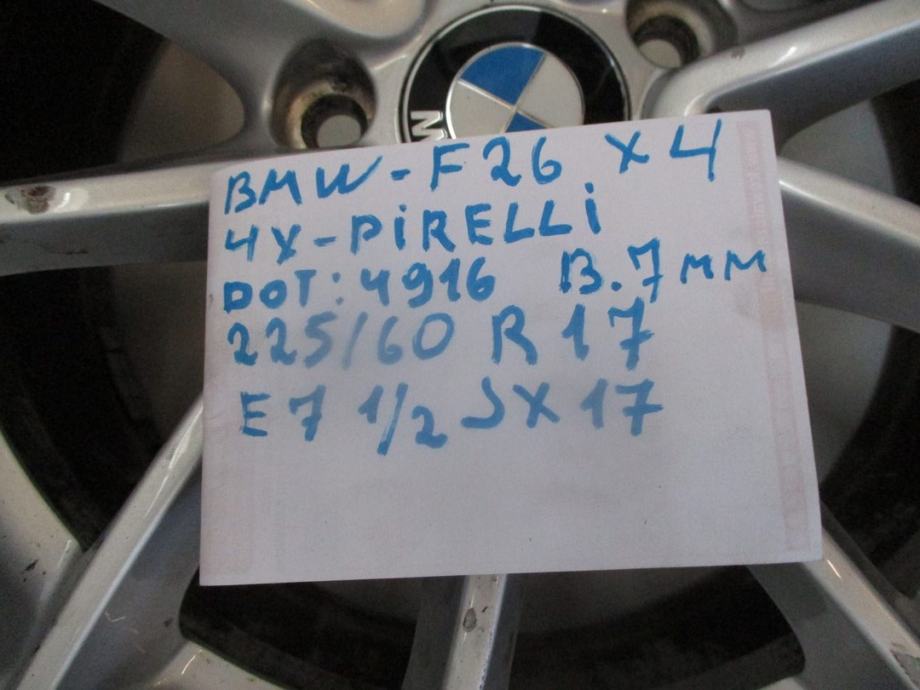 M
BMW-F26 X4
4X-PiRELLi
DOT:4916 B.7mm
225/60 R17
E7 1/2 JX17